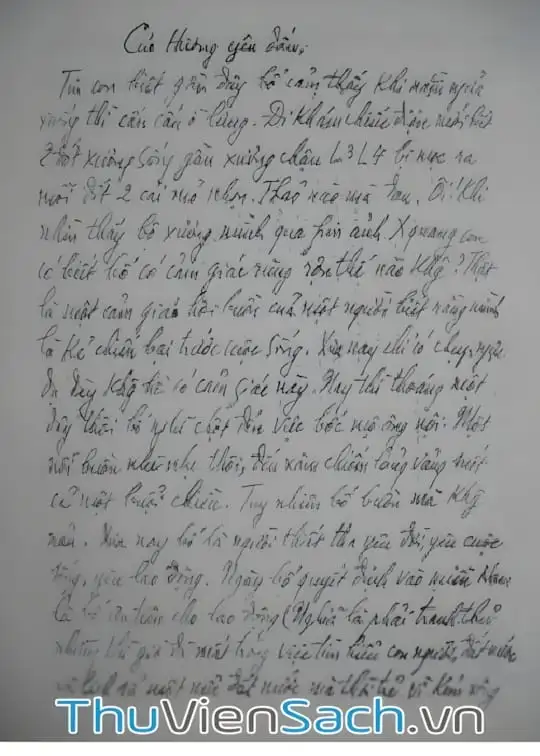 Của Hương yêu dấu,
Tin con biết gần đây bố cảm thấy khi nằm ngửa
xuống thì cấn cấn ở lưng. Đi khám chiếu điện mới biết
2 đốt xương sống gần xương chậu L3 L4 bị mọc ra
mỗi đốt 2 cái mỏ nhọn. Thảo nào mà đau. Ôi! Khi
nhìn thấy bộ xương mình qua phim ảnh X quang con
có biết bố có cảm giác rùng rợn thế nào khg? Thật
là một cảm giác hơi buồn của một người biết rằng mình
là kẻ chiến bại trước cuộc sống. Xưa nay chỉ có chạy, ngựa
đâu đây khg hề có cảm giác này. Nay thi thoảng một
đây thôi bố nghĩ chợt đến việc bốc mộ ông nội. Một
nỗi buồn nhè nhẹ thôi, đến xâm chiếm lảng vảng mất
cả một buổi chiều. Tuy nhiên bố buồn mà khg
nản. Xưa nay bố là người thiết tha yêu đời, yêu cuộc
sống, yêu lao động. Ngày bố quyết định vào miền Nam
là bố ưu tiên cho lao động (Nghĩa là phải tranh thủ
những thì giờ đi mất trong việc tìm hiểu con người, đất nước
và lịch sử một đất nước mà thời trẻ
ThuVienSach.vn